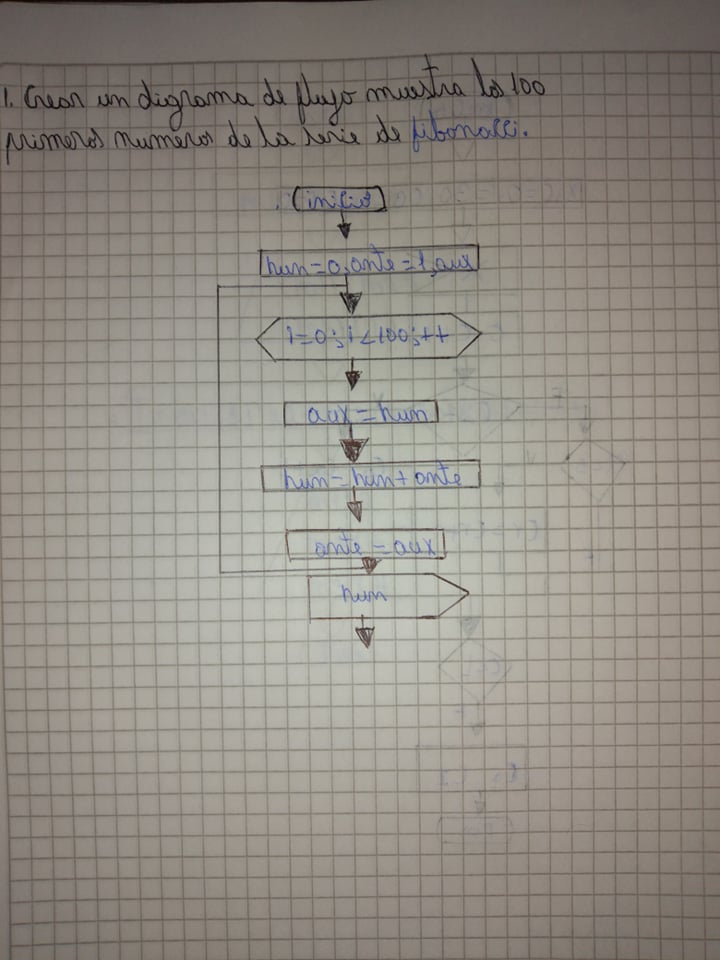 1. Crear un digrama de flujo muestra los 100
primeros numeros de la serie de fibonacci.
inicio
num=0, ante=1, aux
i=0; i<100; ++
aux=num
num=num+ante
ante=aux
num